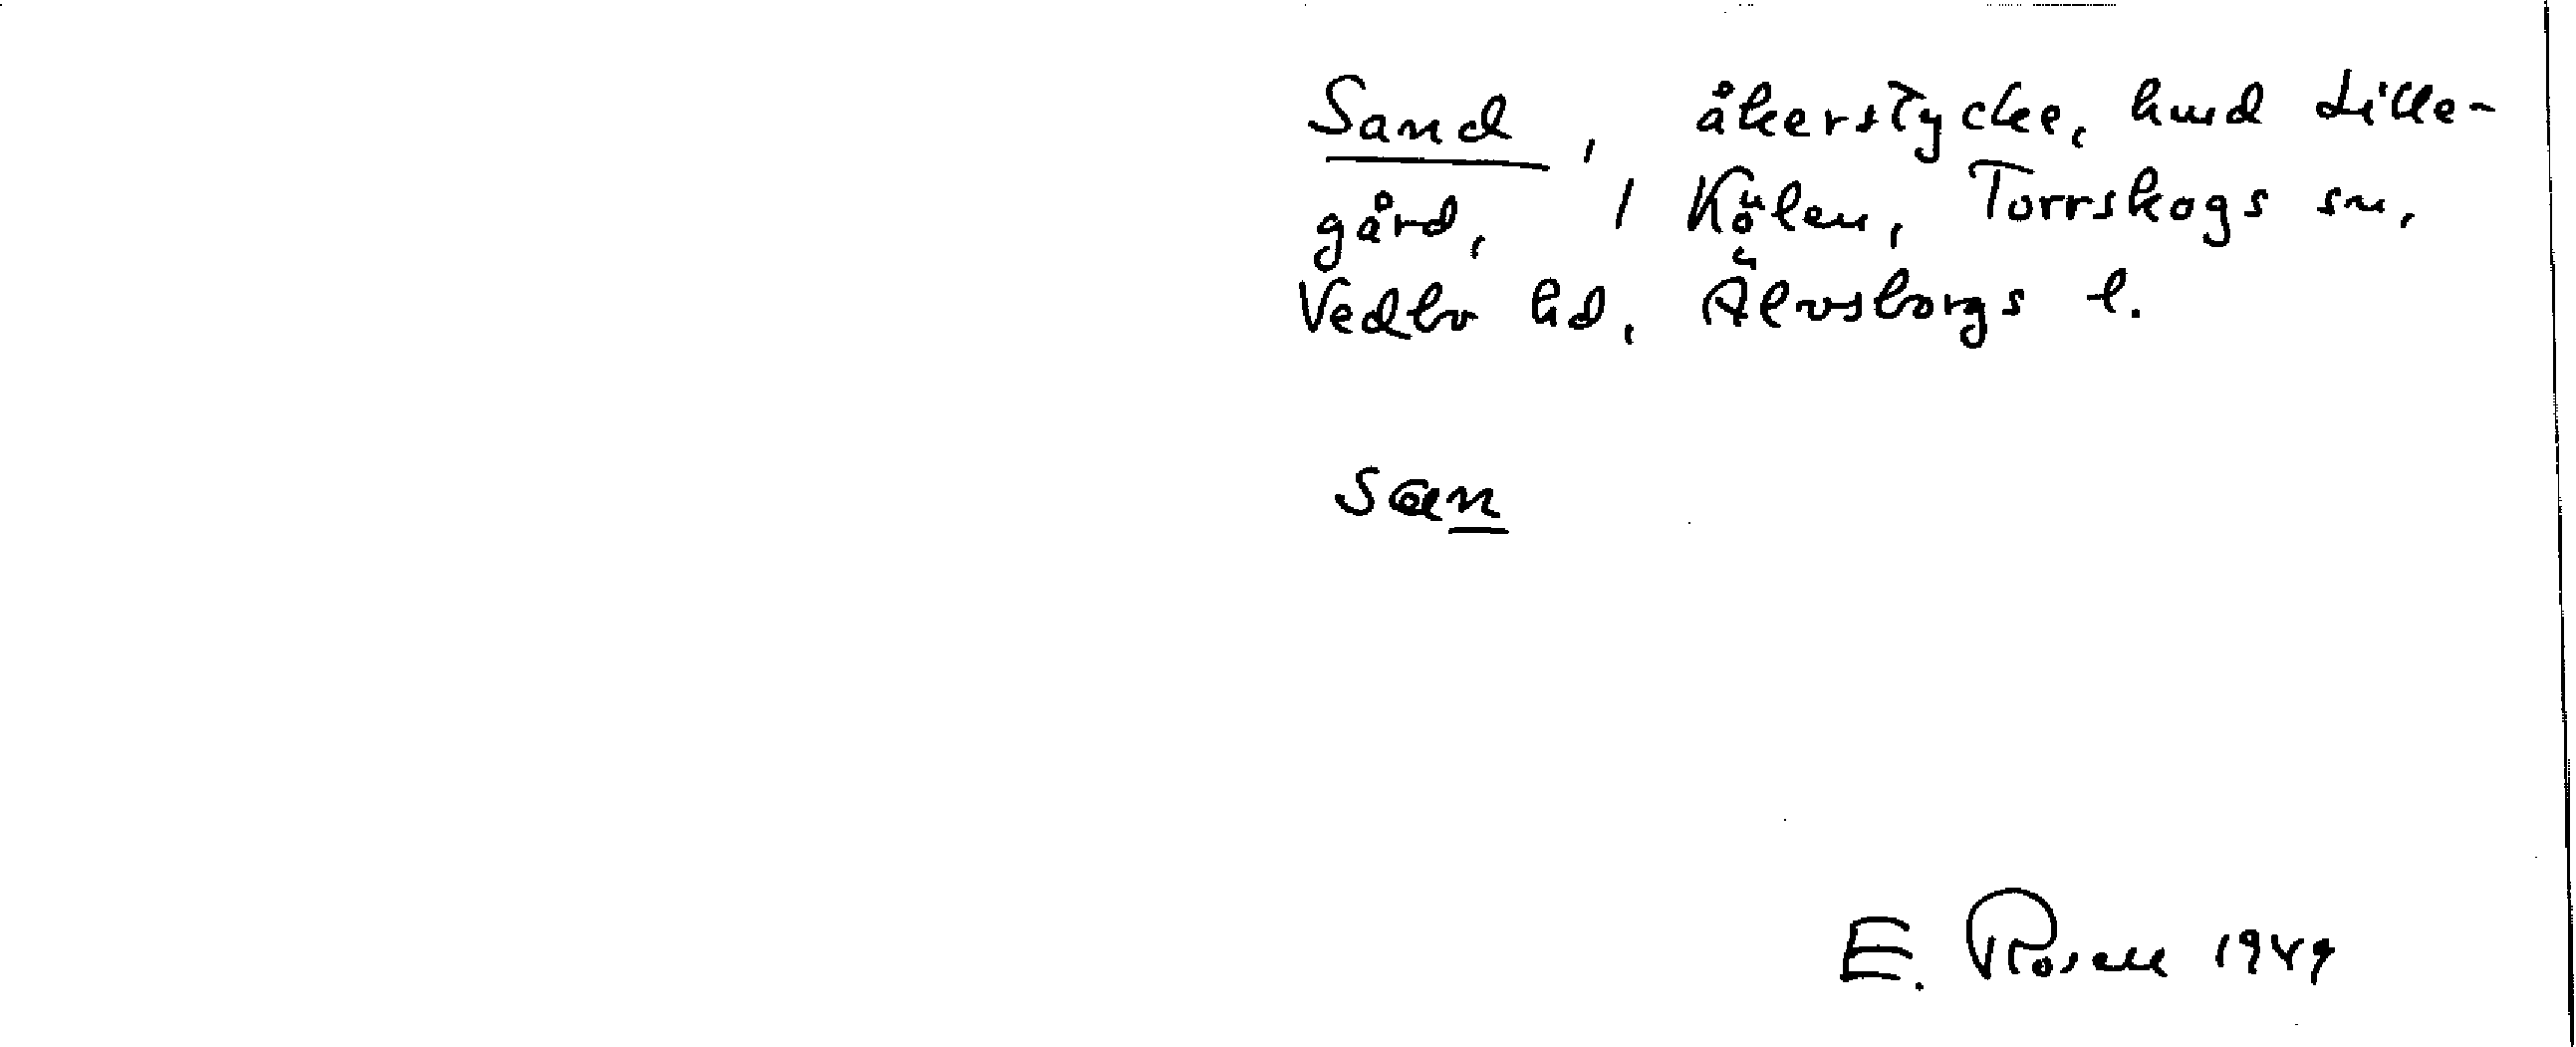 Sand, åkerstycke, hmd Lille-
gård, 1 Kölen, Torrskogs sn,
Vedbo hd, Älvsborgs l.
San
E. Rosell 1949